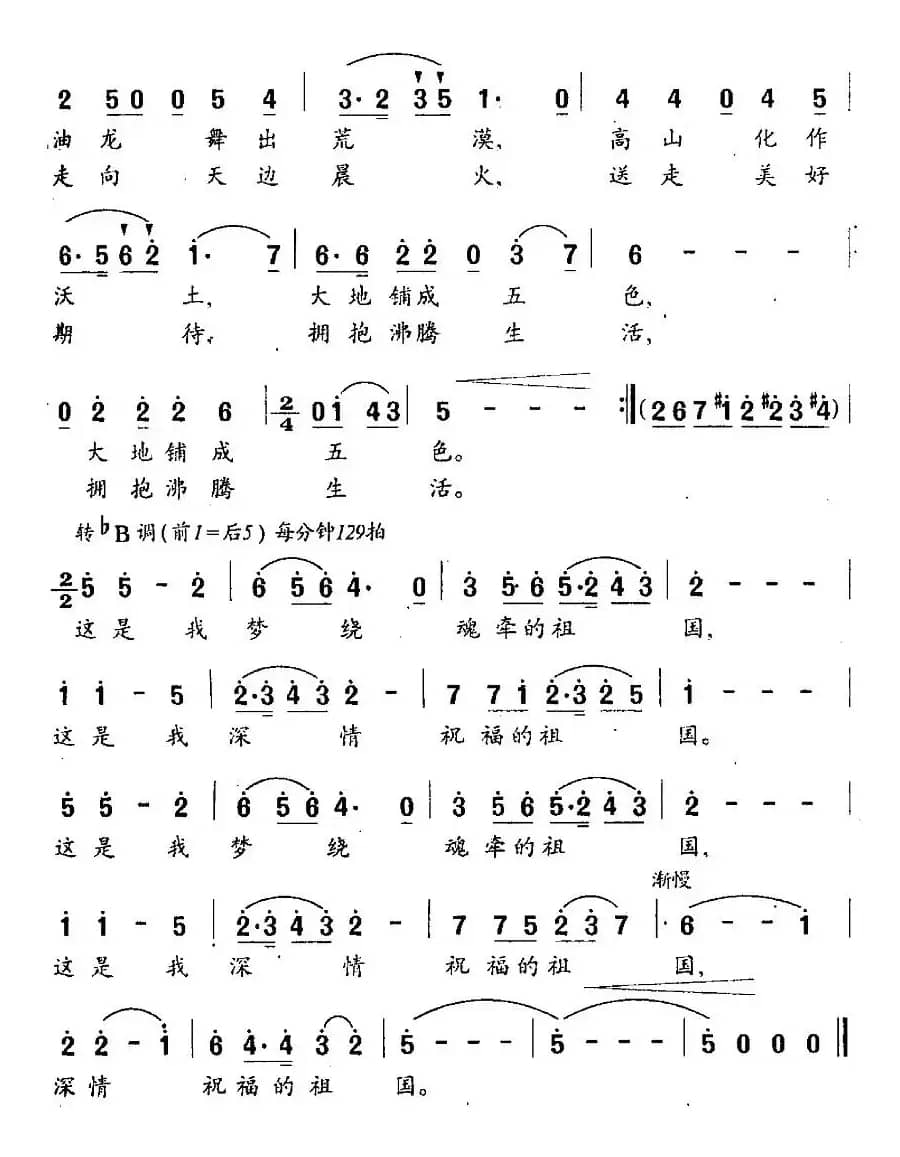 2 50 0 5 4 | 3·2 35 1· 0 | 4 4 0 4 5 |
油龙 舞出荒 漠, 高山 化作
走向 天边晨 火, 送走 美好
6·5 62 1· 7 | 6·6 22 0 3 7 | 6 - - - |
沃 土, 大地铺成 五 色,
期 待, 拥抱沸腾 生 活,
0 2 2 2 6 | 2/4 01 43 | 5 - - - :|| (267#12#23#4) |
大地铺成 五 色。
拥抱沸腾 生 活。
转♭B调(前1=后5) 每分钟129拍
2/2 5 5 - 2 | 6 56 4· 0 | 3 5·6 5·2 43 | 2 - - - |
这是 我梦 绕 魂牵的祖 国,
1 1 - 5 | 2·3 43 2 - | 7 71 2·3 25 | 1 - - - |
这是 我深 情 祝福的祖 国。
5 5 - 2 | 6 56 4· 0 | 3 56 5·2 43 | 2 - - - |
这是 我梦 绕 魂牵的祖 国,
渐慢
1 1 - 5 | 2·3 43 2 - | 7 75 23 7 | 6 - - 1 |
这是 我深 情 祝福的祖 国,
2 2 - 1 | 6 4·4 3 2 | 5 - - - | 5 - - - | 5 0 0 0 ||
深情 祝福的祖 国。